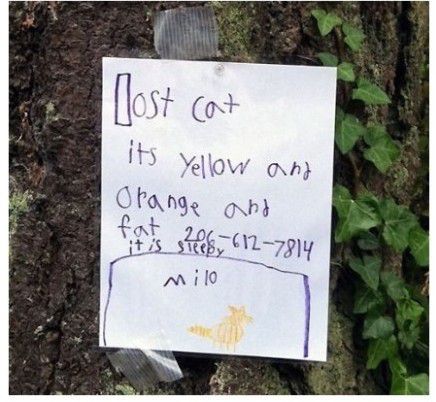 Lost cat
its yellow and
Orange and
fat 206-612-7814
it is sleepy
Milo